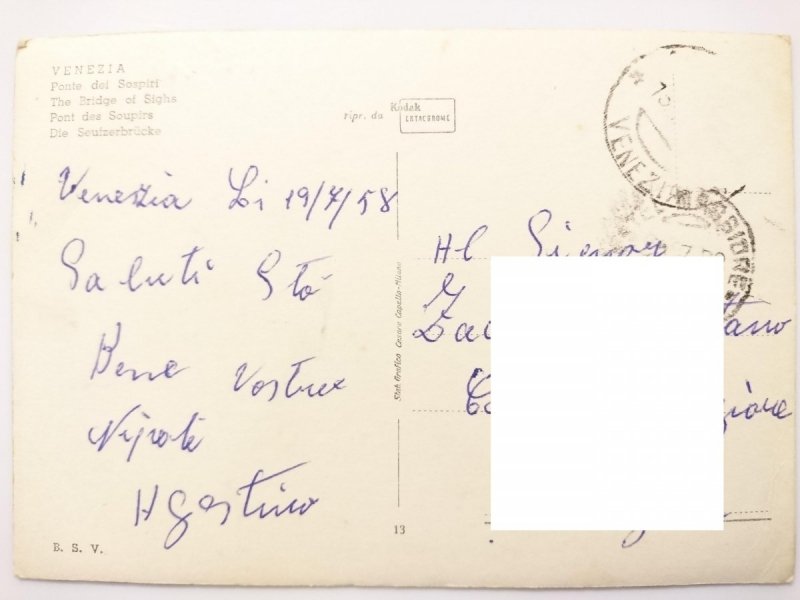 VENEZIA
Ponte dei Sospiri
The Bridge of Sighs
Pont des Soupirs
Die Seufzerbrücke
ripr. da Kodak
EKTACHROME
Venezia Li 19/7/58
Saluti Sto
Bene Vostro
Nipote
Agostino
B. S. V.
Stab. Grafico Cesare Capello-Milano
13
Al Signor
VENEZIA